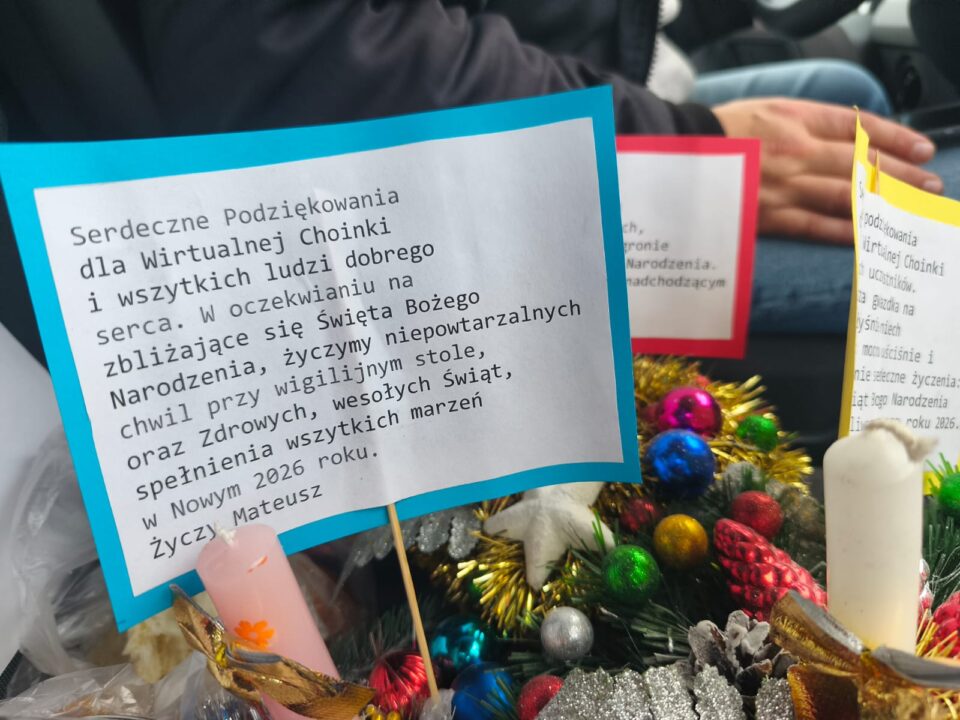 Serdeczne Podziękowania
dla Wirtualnej Choinki
i wszytkich ludzi dobrego
serca. W oczekwianiu na
zbliżające się Święta Bożego
Narodzenia, życzymy niepowtarzalnych
chwil przy wigilijnym stole,
oraz Zdrowych, wesołych Świąt,
spełnienia wszytkich marzeń
w Nowym 2026 roku.
Życzy Mateusz
Narodzenia.
nadchodzącym
podziękowania
Wirtualnej Choinki
uczestników.
gwiazdka na
i
życzenia:
Narodzenia
roku 2026.